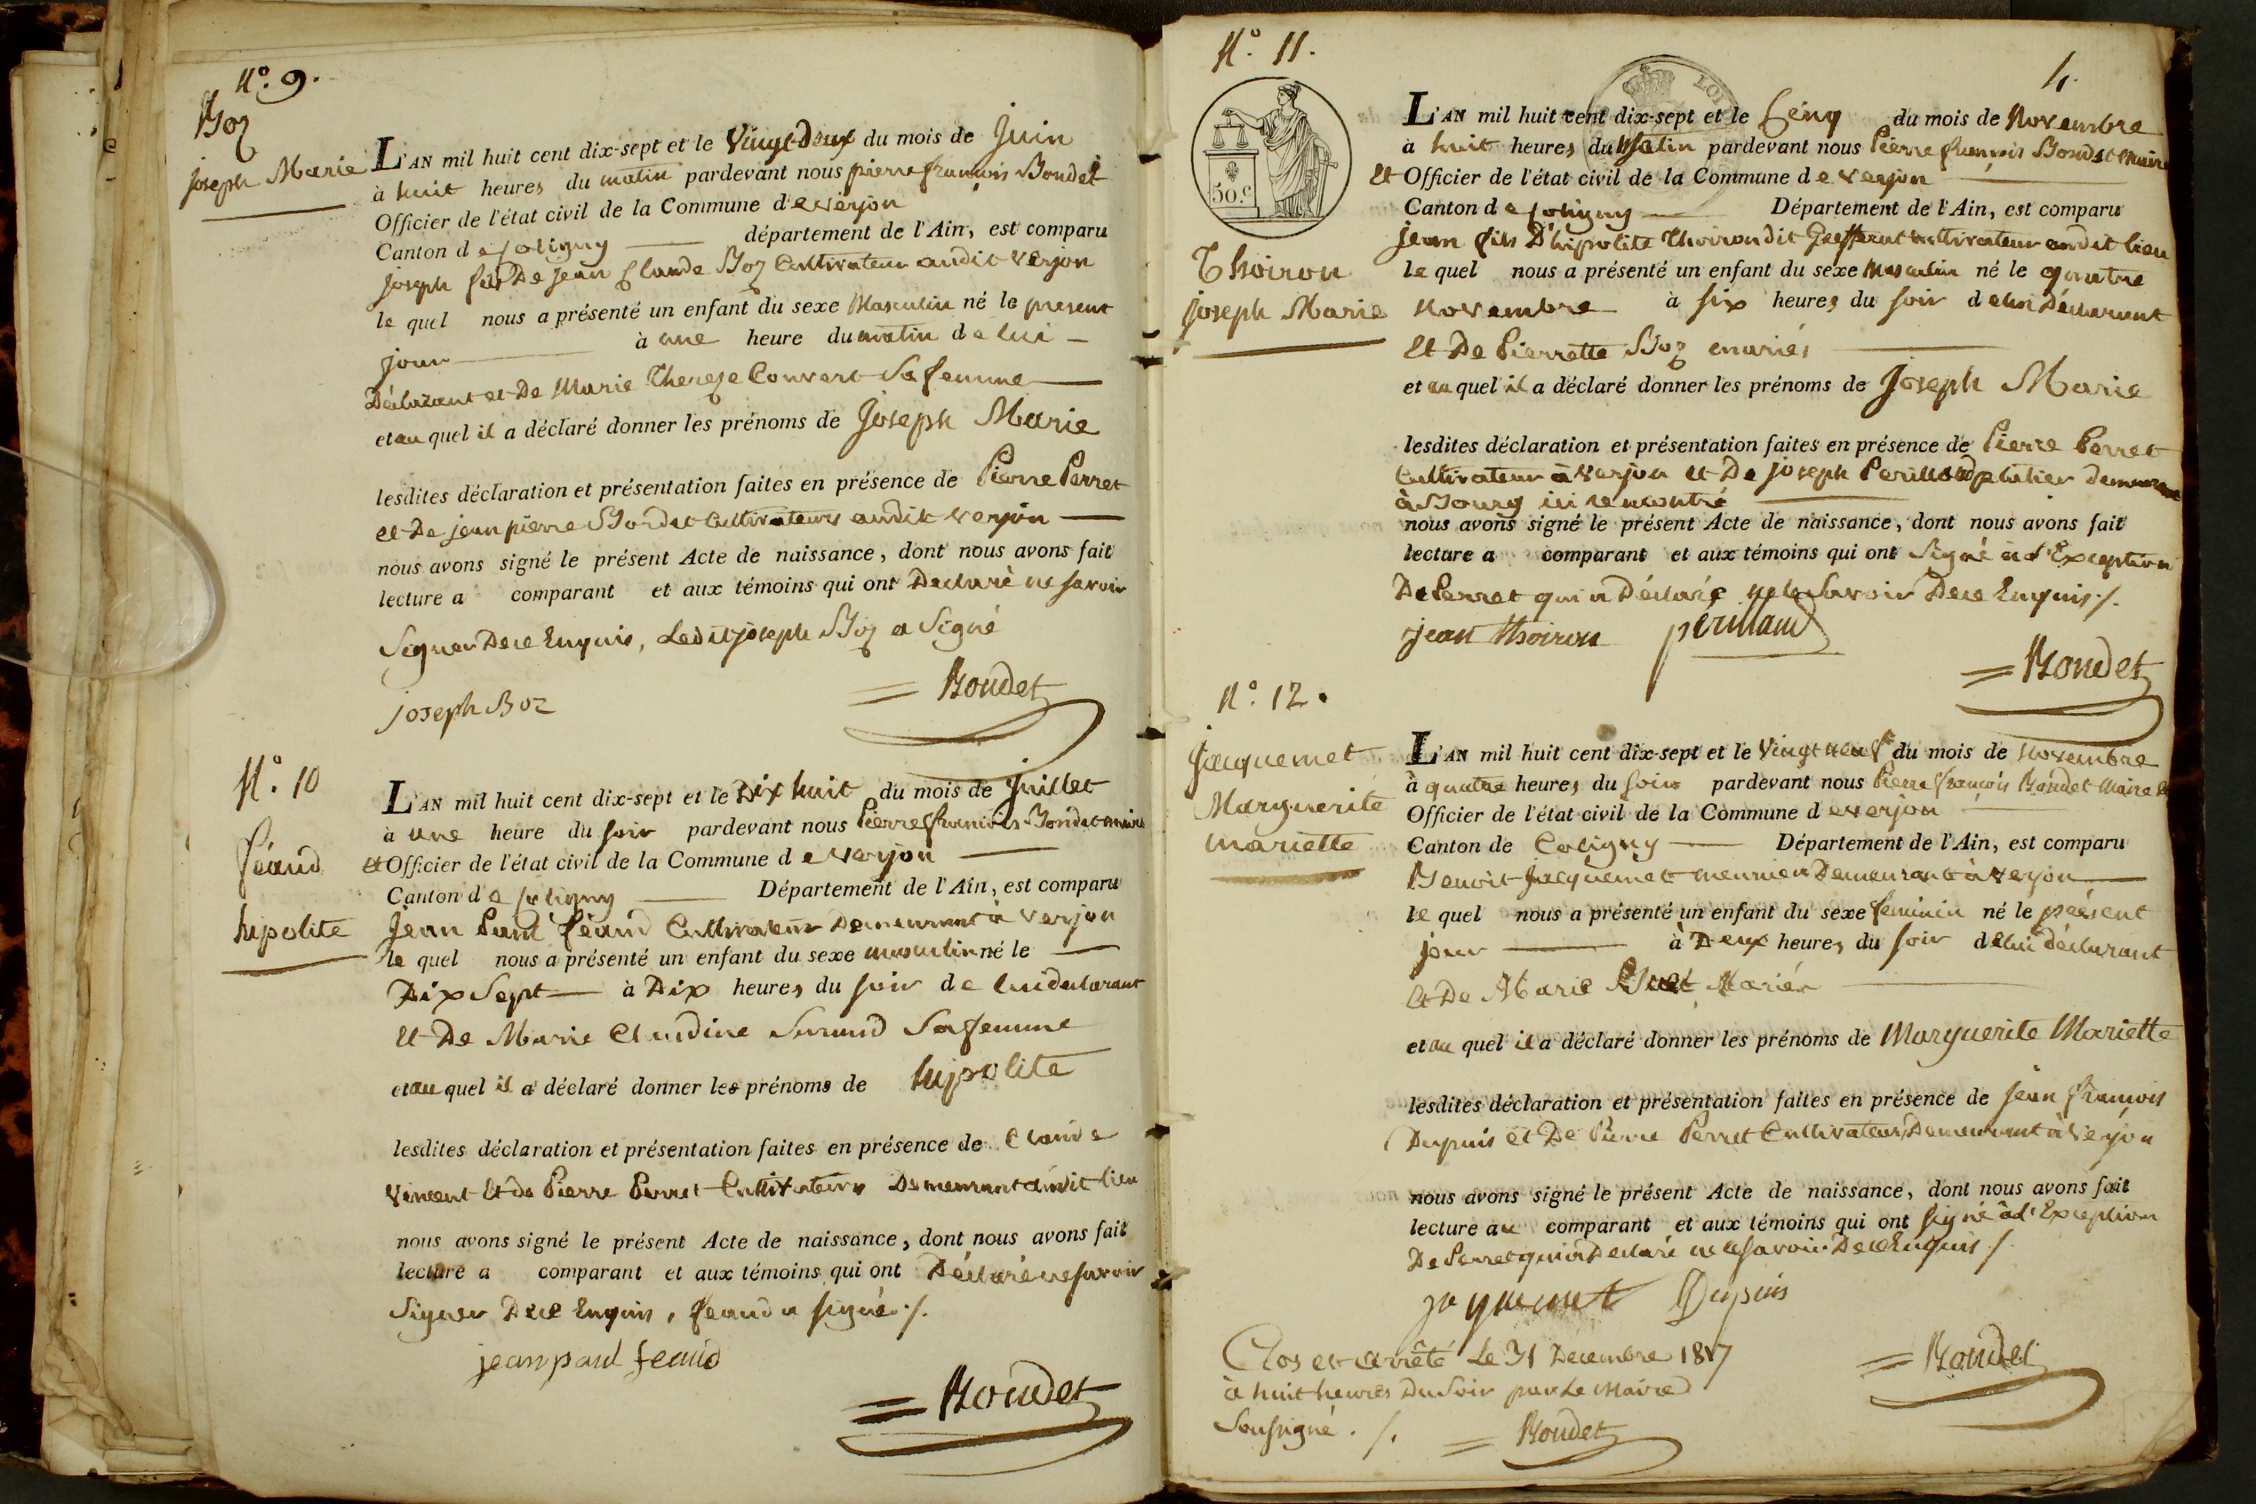 N.° 9.
Boz
Joseph Marie
L'AN mil huit cent dix-sept et le Vingt-Deux du mois de Juin
à huit heures du matin pardevant nous pierre françois Bondet
Officier de l'état civil de la Commune de verjon
Canton de Coligny département de l'Ain, est comparu
Joseph fils De Jean Claude Boz Cultivateur audit verjon
le quel nous a présenté un enfant du sexe Masculin né le present
jour à une heure du matin de lui
Déclarant et De Marie Thereze Convert Sa femme
et au quel il a déclaré donner les prénoms de Joseph Marie
lesdites déclaration et présentation faites en présence de Pierre Perret
et De jean pierre Bondet Cultivateurs audit verjon
nous avons signé le présent Acte de naissance, dont nous avons fait
lecture a comparant et aux témoins qui ont Déclaré ne Savoir
Signer Dece Enquis, Ledit joseph Boz a Signé
joseph Boz
Bondet
N.° 10
féaud
hipolite
L'AN mil huit cent dix-sept et le Dix huit du mois de Juillet
à une heure du soir pardevant nous Pierre françois Bondet maire
et Officier de l'état civil de la Commune de verjon
Canton de Coligny Département de l'Ain, est comparu
Jean Paul féaud Cultivateur Demeurant à verjon
le quel nous a présenté un enfant du sexe masculin né le
Dix Sept à Dix heures du soir de lui declarant
et De Marie Claudine Sa femme
et au quel il a déclaré donner les prénoms de hipolite
lesdites déclaration et présentation faites en présence de Claude
Vincent Et de Pierre Perret Cultivateurs Demeurant audit lieu
nous avons signé le présent Acte de naissance, dont nous avons fait
lecture a comparant et aux témoins qui ont Déclaré ne savoir
Signer Dece Enquis, feaud a signé ./.
jean paul feaud
Bondet
N.° 11.
4.
50.c
Thoiron
Joseph Marie
L'AN mil huit cent dix-sept et le Cinq du mois de Novembre
à huit heures du Matin pardevant nous Pierre françois Bondet Maire
et Officier de l'état civil de la Commune de verjon
Canton de Coligny Département de l'Ain, est comparu
Jean fils D'hipolite Thoiron dit Cultivateur audit lieu
le quel nous a présenté un enfant du sexe Masculin né le quatre
Novembre à six heures du soir de lui Déclarant
Et De Pierrette Boz mariés
et au quel il a déclaré donner les prénoms de Joseph Marie
lesdites déclaration et présentation faites en présence de Pierre Perret
Cultivateur à verjon et De joseph demeurant
à Bourg ici rencontré
nous avons signé le présent Acte de naissance, dont nous avons fait
lecture a comparant et aux témoins qui ont Signé à l'Exception
De Perret qui a Déclaré ne le Savoir Dece Enquis ./.
jean thoiron
Bondet
N.° 12.
Jacquemet
Marguerite
Mariette
L'AN mil huit cent dix-sept et le Vingt neuf du mois de Novembre
à quatre heures du soir pardevant nous Pierre françois Bondet Maire et
Officier de l'état civil de la Commune de verjon
Canton de Coligny Département de l'Ain, est comparu
Benoit Jacquemet meunier Demeurant à verjon
le quel nous a présenté un enfant du sexe feminin né le présent
jour à Deux heures du soir de lui déclarant
Et De Marie Mariés
et au quel il a déclaré donner les prénoms de Marguerite Mariette
lesdites déclaration et présentation faites en présence de jean françois
Dupuis et De Pierre Perret Cultivateurs Demeurant à verjon
nous avons signé le présent Acte de naissance, dont nous avons fait
lecture au comparant et aux témoins qui ont signé à l'Exception
De Perret qui a Déclaré ne le savoir Dece Enquis ./.
jaquemet Dupuis
Bondet
Clos et arrêté Le 31 Decembre 1817
à huit heures Du Soir par Le Maire
Soussigné ./.
Bondet